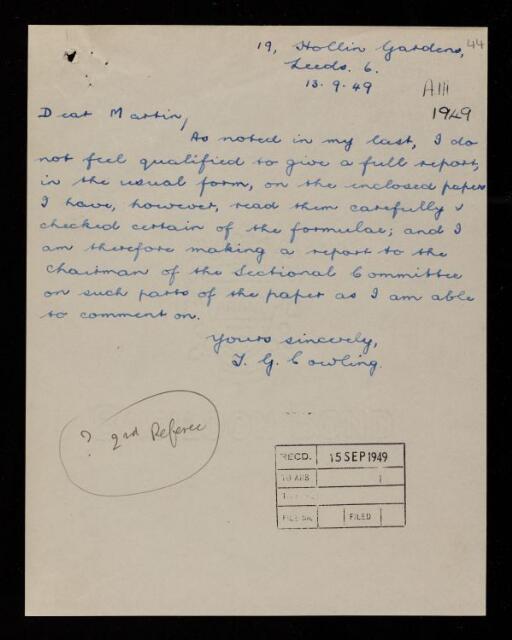 44
19, Hollin Gardens,
Leeds. 6.
13.9.49
A111
1949
Dear Martin,
As noted in my last, I do
not feel qualified to give a full report,
in the usual form, on the enclosed papers
I have, however, read them carefully &
checked certain of the formulae; and I
am therefore making a report to the
Chairman of the Sectional Committee
on such parts of the paper as I am able
to comment on.
Yours sincerely,
T. G. Cowling.
? 2nd Referee
RECD. 15 SEP 1949
TO ANS
FILE No. FILED